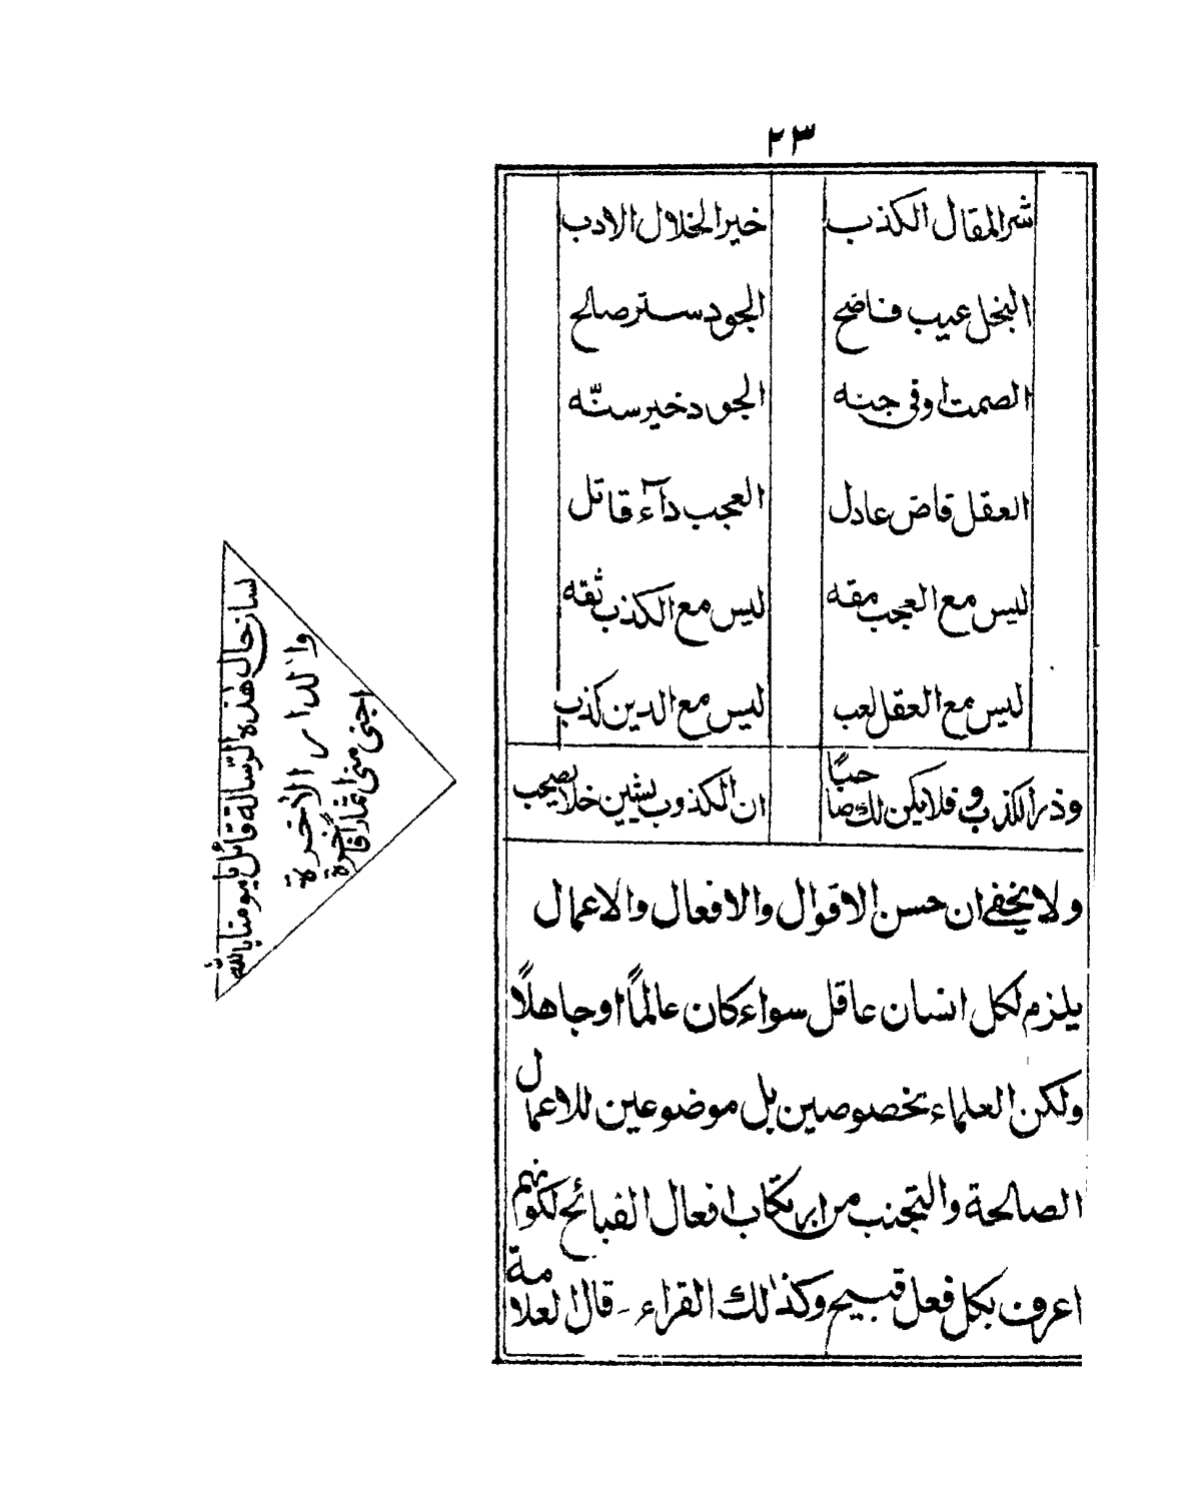 ٢٣
شر المقال الكذب خير الخلال الادب
البخل عيب فاضح الجود ستر صالح
الصمت اوقى جنه الجود خير سنّه
العقل قاض عادل العجب دآء قاتل
ليس مع العجب مقه ليس مع الكذب ثقه
ليس مع العقل لعب ليس مع الدين كذب
وذر الكذوب فلا يكن لك صاحبًا ان الكذوب يشين خلا يصحب
ولا يخفى ان حسن الاقوال والافعال والاعمال
يلزم لكل انسان عاقل سواء كان عالمًا او جاهلًا
ولكن العلماء مخصوصين بل موضوعين للاعمال
الصالحة والتجنب من ارتكاب افعال القبائح لكونهم
اعرف بكل فعل قبيح وكذٰلك القراء - قال العلامة
لسان حال هٰذه الرّسالة قائل يا مومنا بالله
والدار الاٰخرة
اجنى منى اثمارًا فاخرة